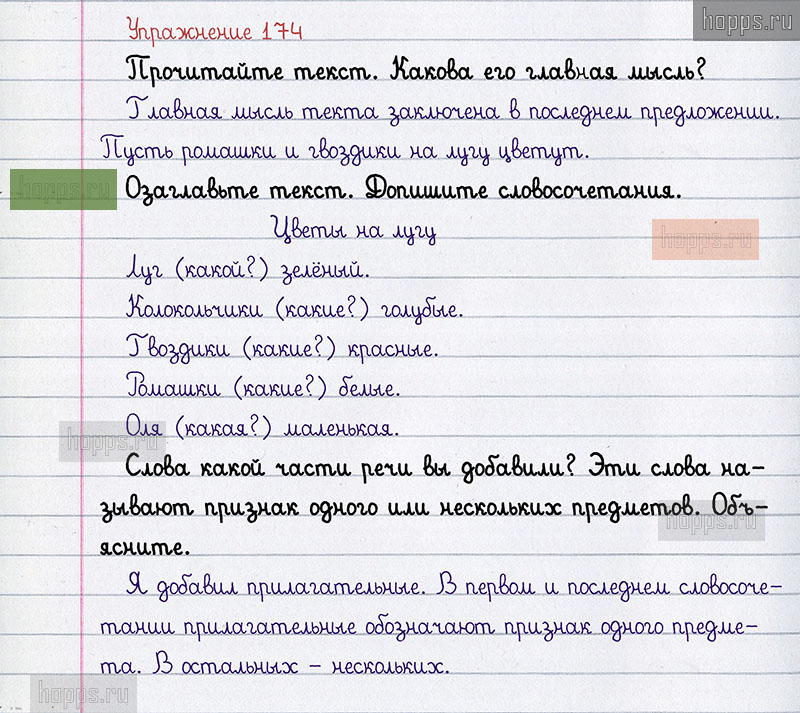 hopps.ru
Упражнение 174
Прочитайте текст. Какова его главная мысль?
Главная мысль текта заключена в последнем предложении.
Пусть ромашки и гвоздики на лугу цветут.
hopps.ru
Озаглавьте текст. Допишите словосочетания.
Цветы на лугу
hopps.ru
Луг (какой?) зелёный.
Колокольчики (какие?) голубые.
Гвоздики (какие?) красные.
Ромашки (какие?) белые.
Оля (какая?) маленькая.
hopps.ru
Слова какой части речи вы добавили? Эти слова на-
зывают признак одного или нескольких предметов. Объ-
hopps.ru
ясните.
Я добавил прилагательные. В первом и последнем словосоче-
тании прилагательные обозначают признак одного предме-
та. В остальных – нескольких.
hopps.ru